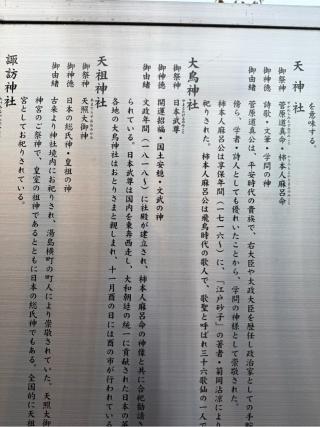 を意味する。
天神社
御祭神 菅原道真公・柿本人麻呂命
御神徳 詩歌・文筆・学問の神
御由緒 菅原道真公は、平安時代の貴族で、右大臣や太政大臣を歴任し政治家としての手腕
傍ら、学者・詩人としても優れていたことから、学問の神様として崇敬された。
柿本人麻呂公は享保年間（一七一六～）に、『江戸砂子』の著者・菊岡沾凉により
祀りされた。柿本人麻呂公は飛鳥時代の歌人で、歌聖と呼ばれ三十六歌仙の一人で
大鳥神社
御祭神 日本武尊
御神徳 開運招福・国土安穏・文武の神
御由緒 文政年間（一八一八～）に社殿が建立され、柿本人麻呂命の神像と共に合祀勧請さ
られている。日本武尊は国内を東奔西走し、大和朝廷の統一に貢献された日本の英
各地の大鳥神社はおとりさまと親しまれ、十一月酉の日には酉の市が行われている
天祖神社
御祭神 天照大御神
御神徳 日本の総氏神・皇祖の神
御由緒 古来より神社境内にお祀りされ、湯島横町の町人により崇敬されていた。天照大御
神宮のご祭神で、皇室の祖神であるとともに日本の総氏神でもある。全国的に天祖
宮としてお祀りされている。
諏訪神社